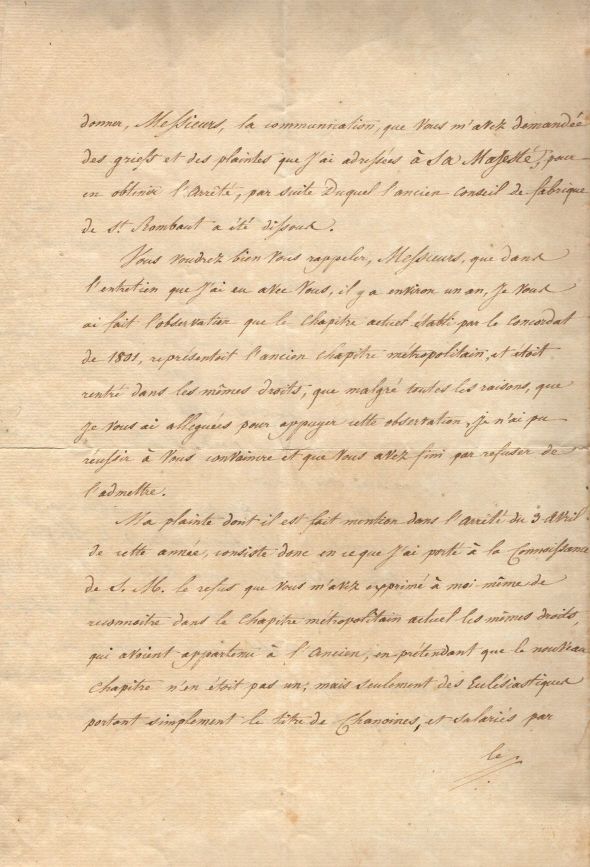 donner, Messieurs, la communication, que Vous m'avez demandée
des griefs et des plaintes que J'ai adressées à Sa Majesté, pour
en obtenir l'Arrêté, par suite Duquel l'ancien Conseil de fabrique
de St. Rombaut a été dissous.
Vous voudrez bien Vous rappeler, Messieurs, que dans
l'entretien que J'ai eu avec Vous, il y a environ un an, Je Vous
ai fait l'observation que le Chapitre actuel établi par le Concordat
de 1801, représentoit l'ancien Chapitre métropolitain, et étoit
rentré dans les mêmes droits, que malgré toutes les raisons, que
je Vous ai alleguées pour appuyer cette observation, Je n'ai pu
réussir à Vous convaincre et que Vous avez fini par refuser de
l'admettre.
Ma plainte dont il est fait mention dans l'arrêté du 3 Avril
de cette année, consiste donc en ce que J'ai porté à la Connoissance
de S. M. le refus que Vous m'avez exprimé à moi-même de
reconnoitre dans le Chapitre métropolitain actuel les mêmes droits,
qui avoient appartenu à l'Ancien, en prétendant que le nouveau
Chapitre n'en étoit pas un; mais seulement des Ecclésiastiques
portant simplement le titre de Chanoines, et salariés par
le